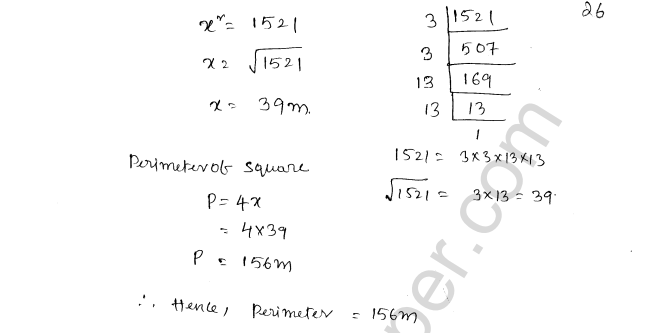 26
x² = 1521
x = √1521
x = 39m.
3 | 1521
3 | 507
13 | 169
13 | 13
1
1521 = 3×3×13×13
√1521 = 3×13 = 39.
Perimeter of square
P = 4x
= 4×39
P = 156m
∴ Hence, Perimeter = 156m
per.com